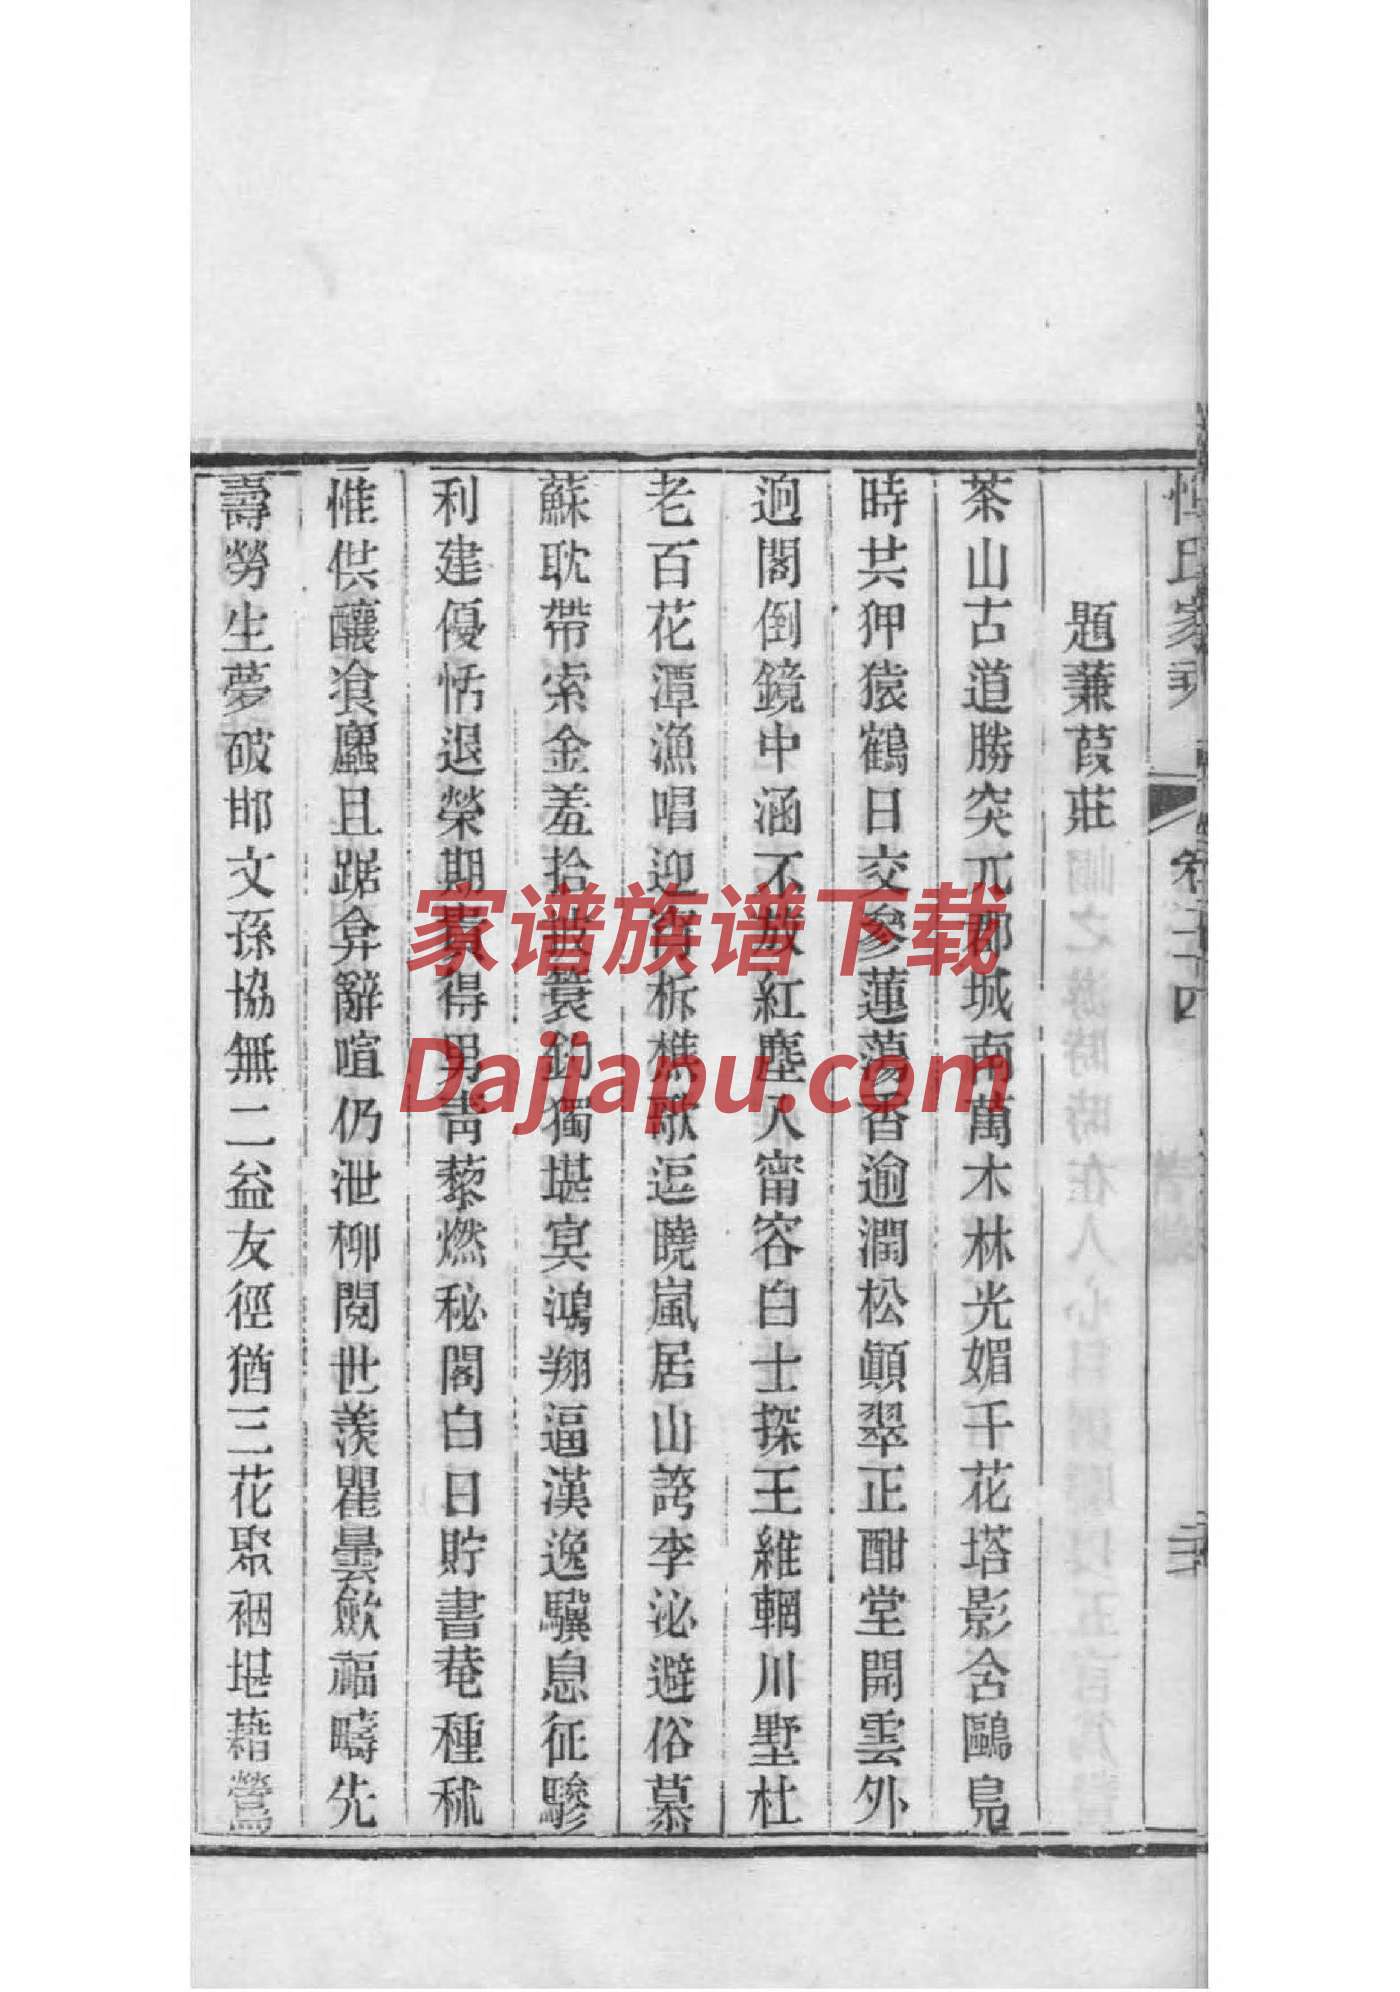 氏家乘
卷五十四
題蒹葭莊
茶山古道勝突兀郡城南萬木林光媚千花塔影含鷗鳧
時共狎猿鶴日交參蓮蕩香逾潤松巔翠正酣堂開雲外
逈閣倒鏡中涵不放紅塵入甯容白士探王維輞川墅杜
老百花潭漁唱迎寅柝樵歌逗曉嵐居山誇李泌避俗慕
蘇耽帶索金羞拾披簑釣獨堪冥鴻翔逼漢逸驥息征驂
利建優恬退榮期貴得男青藜燃秘閣白日貯書菴種秫
惟供釀飡麤且踞弇辭喧仍泄柳閱世羨瞿曇斂福疇先
壽勞生夢破邯文孫協無二益友徑猶三花聚裀堪藉鶯
家谱族谱下载
Dajiapu.com